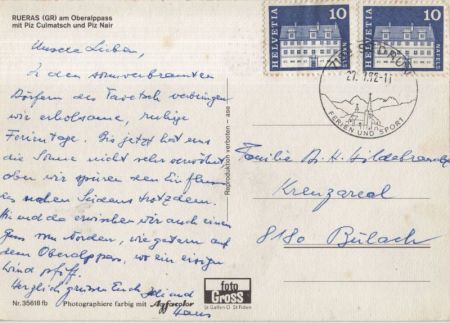 RUERAS (GR) am Oberalppass
mit Piz Culmatsch und Piz Nair
Unsere Lieben,
In den sonnverbrannten
Dörfern des Tavetsch verbringen
wir erholsame, ruhige
Ferientage. Bis jetzt hat uns
die Sonne nicht sehr verwöhnt,
aber wir spüren den Einfluss
des nahen Südens trotzdem.
Hi und da erwischen wir auch einen
Gruss vom Norden, wie gestern auf
dem Oberalppass, wo ein eisiger
Wind pfiff.
Herzlich grüssen Euch und
Hans
Reproduktion verboten
HELVETIA 10 NÄFELS
HELVETIA 10 NÄFELS
SEDRUN
27.7.72-11
FERIEN UND SPORT
Familie H. Hildebrand
Kreuzareal
8180 Bülach
foto
Gross
St. Gallen
Nr. 35618 fb
Photographiere farbig mit Agfacolor